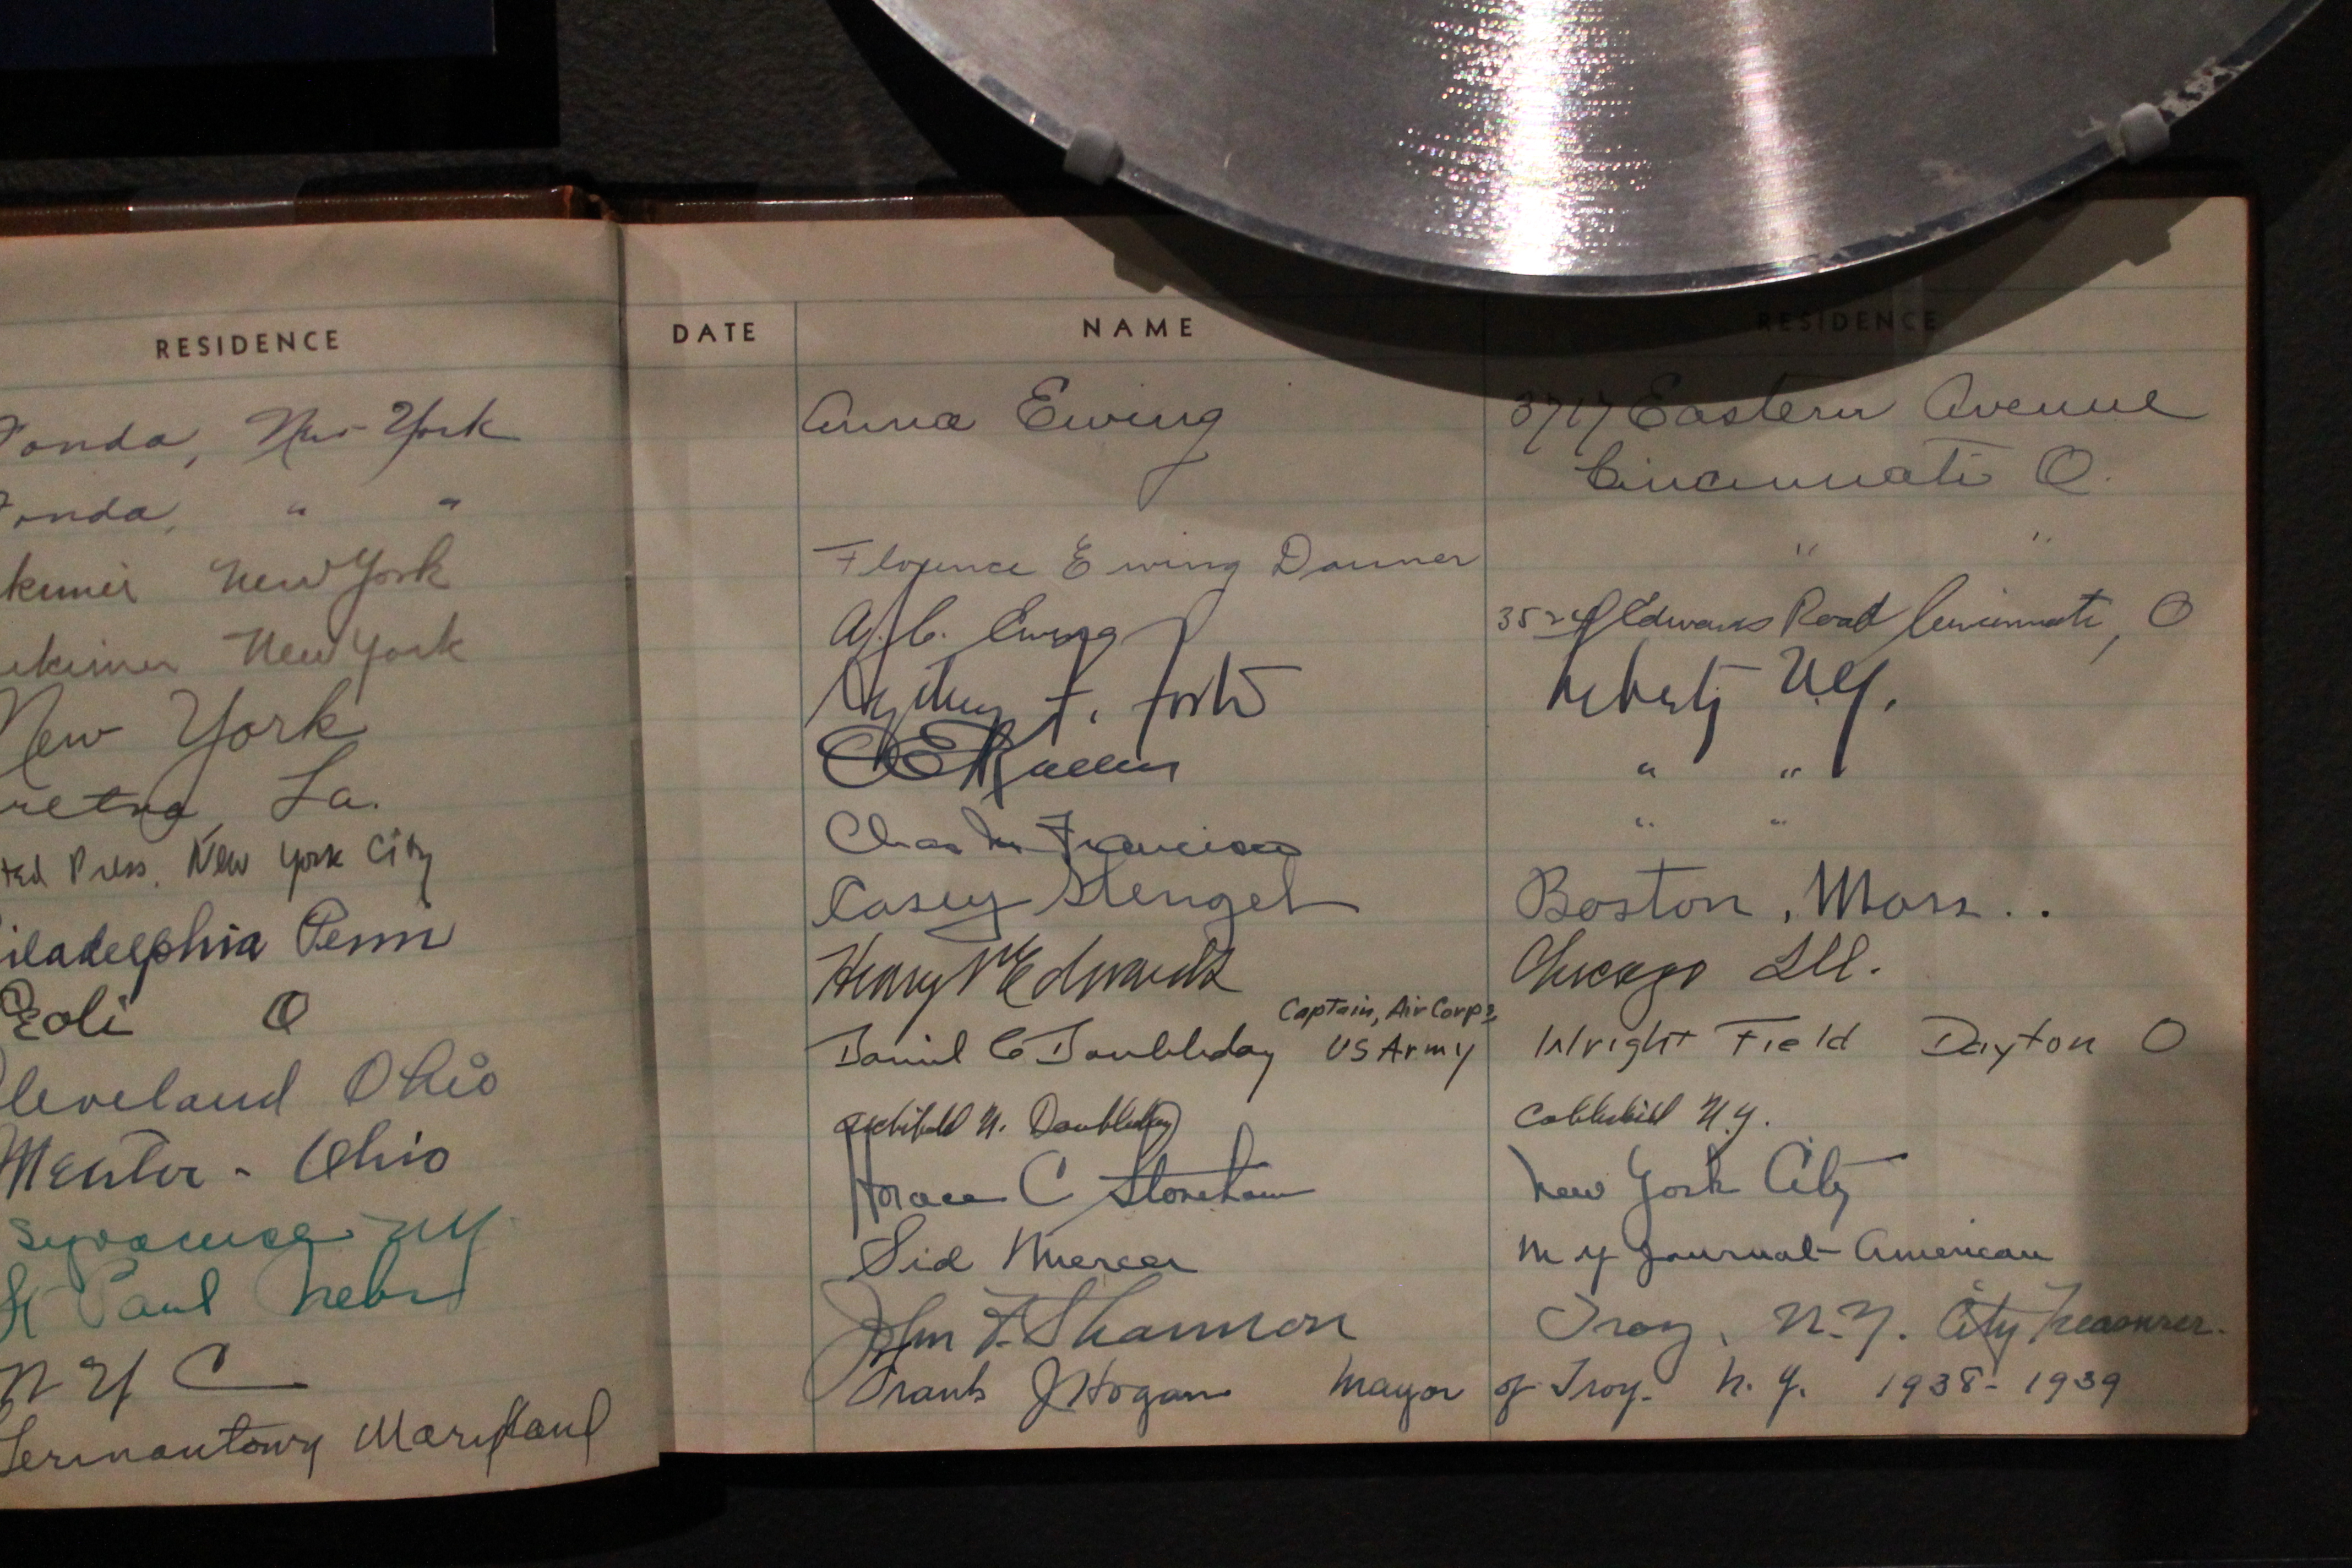 RESIDENCE
Fonda, New York
Fonda, " "
New York
New York
New York
La.
Press. New York City
iladelphia Penn
O
Cleveland Ohio
Mentor - Ohio
Syracuse N.Y.
St Paul Nebr
N Y C
Germantown Maryland
DATE NAME RESIDENCE
Anna Ewing 3717 Eastern Avenue
Cincinnati O.
Florence Ewing Danner " "
A.C. Ewing Edwards Road Cincinnati, O
F. Liberty N.Y.
" "
Francisco " "
Casey Stengel Boston, Mass..
Henry Edwards Chicago Ill.
Captain, Air Corps,
Daniel C Doubleday US Army Wright Field Dayton O
Archibald N. Doubleday Cobleskill N.Y.
Horace C Stoneham New York City
Sid Mercer N Y Journal-American
John F. Shannon Troy, N.Y. City Treasurer.
Frank J Hogan Mayor of Troy. N.Y. 1938-1939